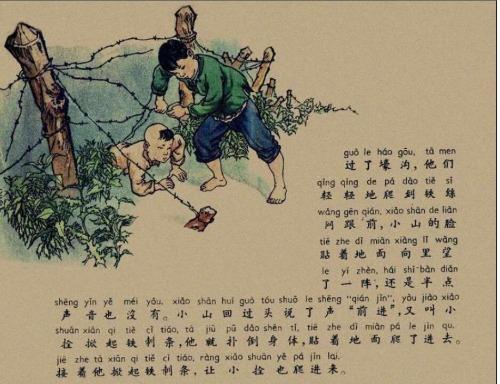 guò le háo gōu, tā men
过了壕沟,他们
qīng qīng de pá dào tiě sī
轻轻地爬到铁丝
wǎng gēn qián, xiǎo shān de liǎn
网跟前,小山的脸
tiē zhe dì miàn xiàng lǐ wàng
贴着地面向里望
le yí zhèn, hái shì bàn diǎn
了一阵,还是半点
shēng yīn yě méi yǒu. xiǎo shān huí guò tóu shuō le shēng "qián jìn", yòu jiào xiǎo
声音也没有。小山回过头说了声"前进",又叫小
shuān xiān qi tiě cì tiáo, tā jiù pū dǎo shēn tǐ, tiē zhe dì miàn pá le jìn qu.
拴掀起铁刺条,他就扑倒身体,贴着地面爬了进去。
jiē zhe tā xiān qi tiě cì tiáo, ràng xiǎo shuān yě pá jìn lai.
接着他掀起铁刺条,让小拴也爬进来。